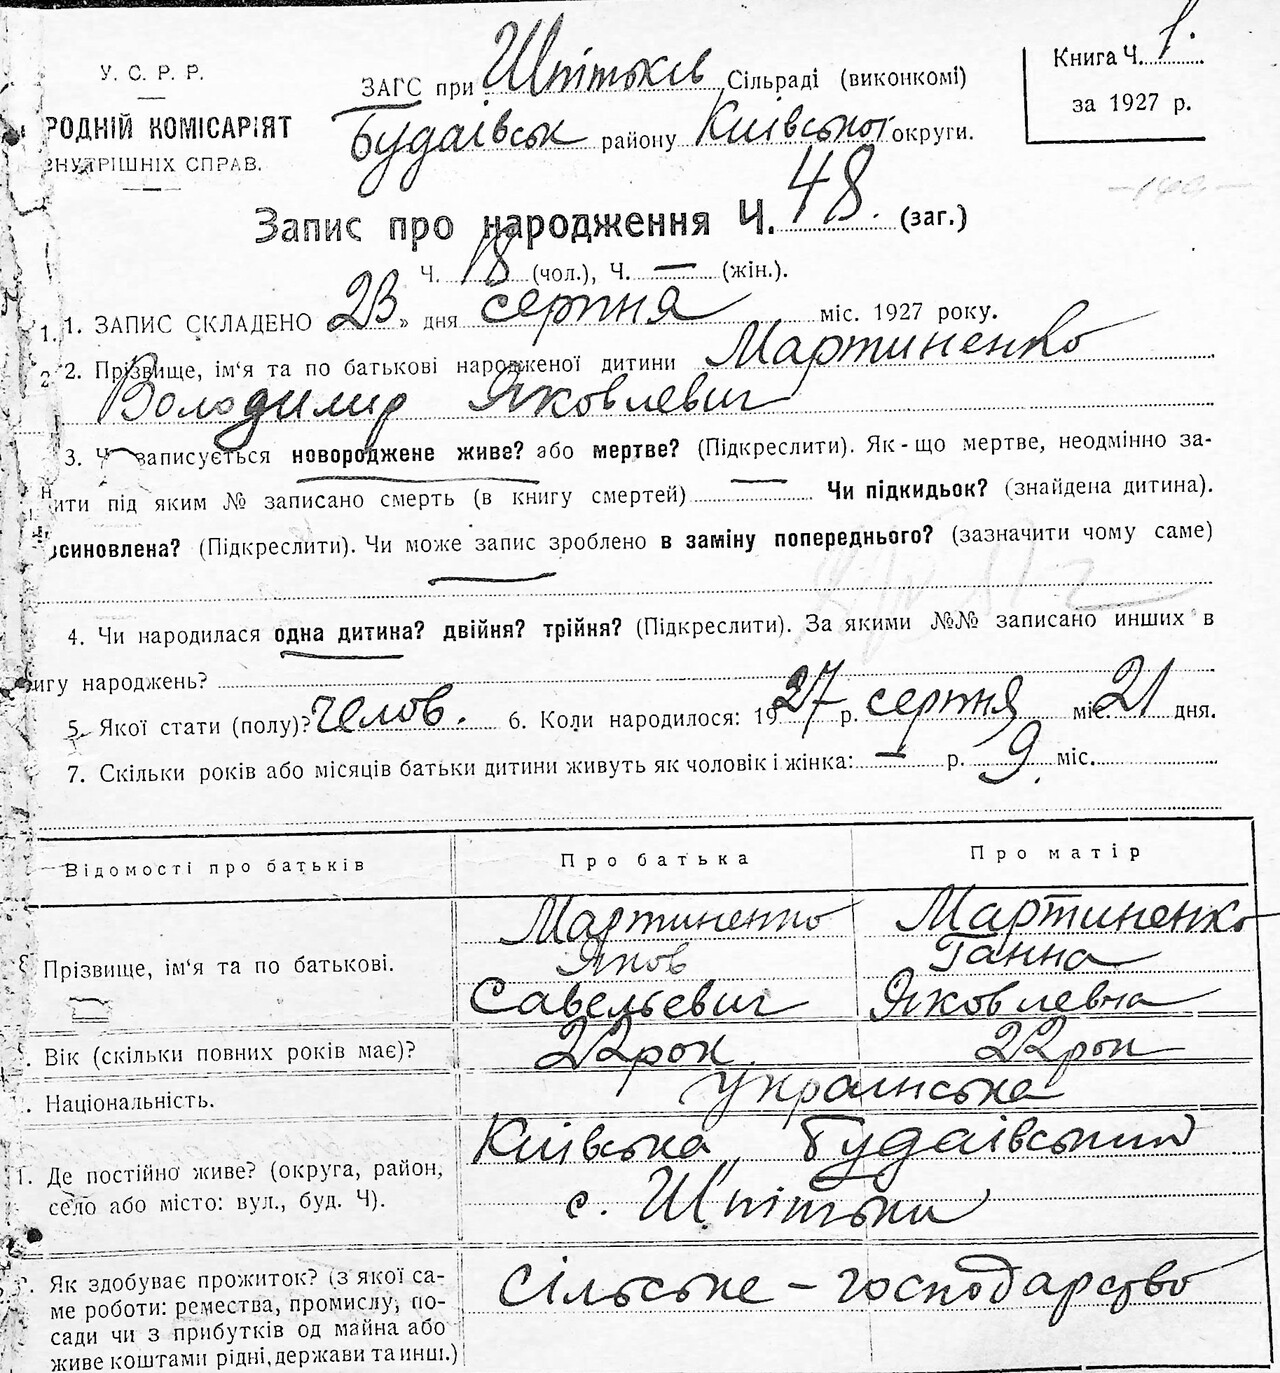 У. С. Р. Р.
РОДНІЙ КОМІСАРІЯТ
ВНУТРІШНІХ СПРАВ.
ЗАГС при Шпітьків Сільраді (виконкомі)
Будаївськ району Київської округи.
Книга Ч. 1.
за 1927 р.
Запис про народження Ч. 48. (заг.)
Ч. 18 (чол.), Ч. — (жін.).
1. 1. ЗАПИС СКЛАДЕНО 23 » дня серпня міс. 1927 року.
2 2. Прізвище, ім‘я та по батькові народженої дитини Мартиненко
Володимир Яковлевич
3. Ч записується новороджене живе? або мертве? (Підкреслити). Як-що мертве, неодмінно за-
ити під яким № записано смерть (в книгу смертей) — Чи підкидьок? (знайдена дитина).
всиновлена? (Підкреслити). Чи може запис зроблено в заміну попереднього? (зазначити чому саме)
4. Чи народилася одна дитина? двійня? трійня? (Підкреслити). За якими №№ записано инших в
нигу народжень?
5. Якої стати (полу)? челов. 6. Коли народилося: 1927 р. серпня міс. 21 дня.
7. Скільки років або місяців батьки дитини живуть як чоловік і жінка: — р. 9. міс.
Відомості про батьків Про батька Про матір
Мартиненко Мартиненко
8 Прізвище, ім‘я та по батькові. Яков Ганна
Савельевич Яковлевна
. Вік (скільки повних років має)? 22 рок 22 рок
. Національність. Українська
Київська, Будаівський
1. Де постійно живе? (округа, район,
село або місто: вул., буд. Ч). с. Шпітьки
. Як здобуває прожиток? (з якої са- Сільське – господарство
ме роботи: ремества, промислу, по-
сади чи з прибутків од майна або
живе коштами рідні, держави та инш.)